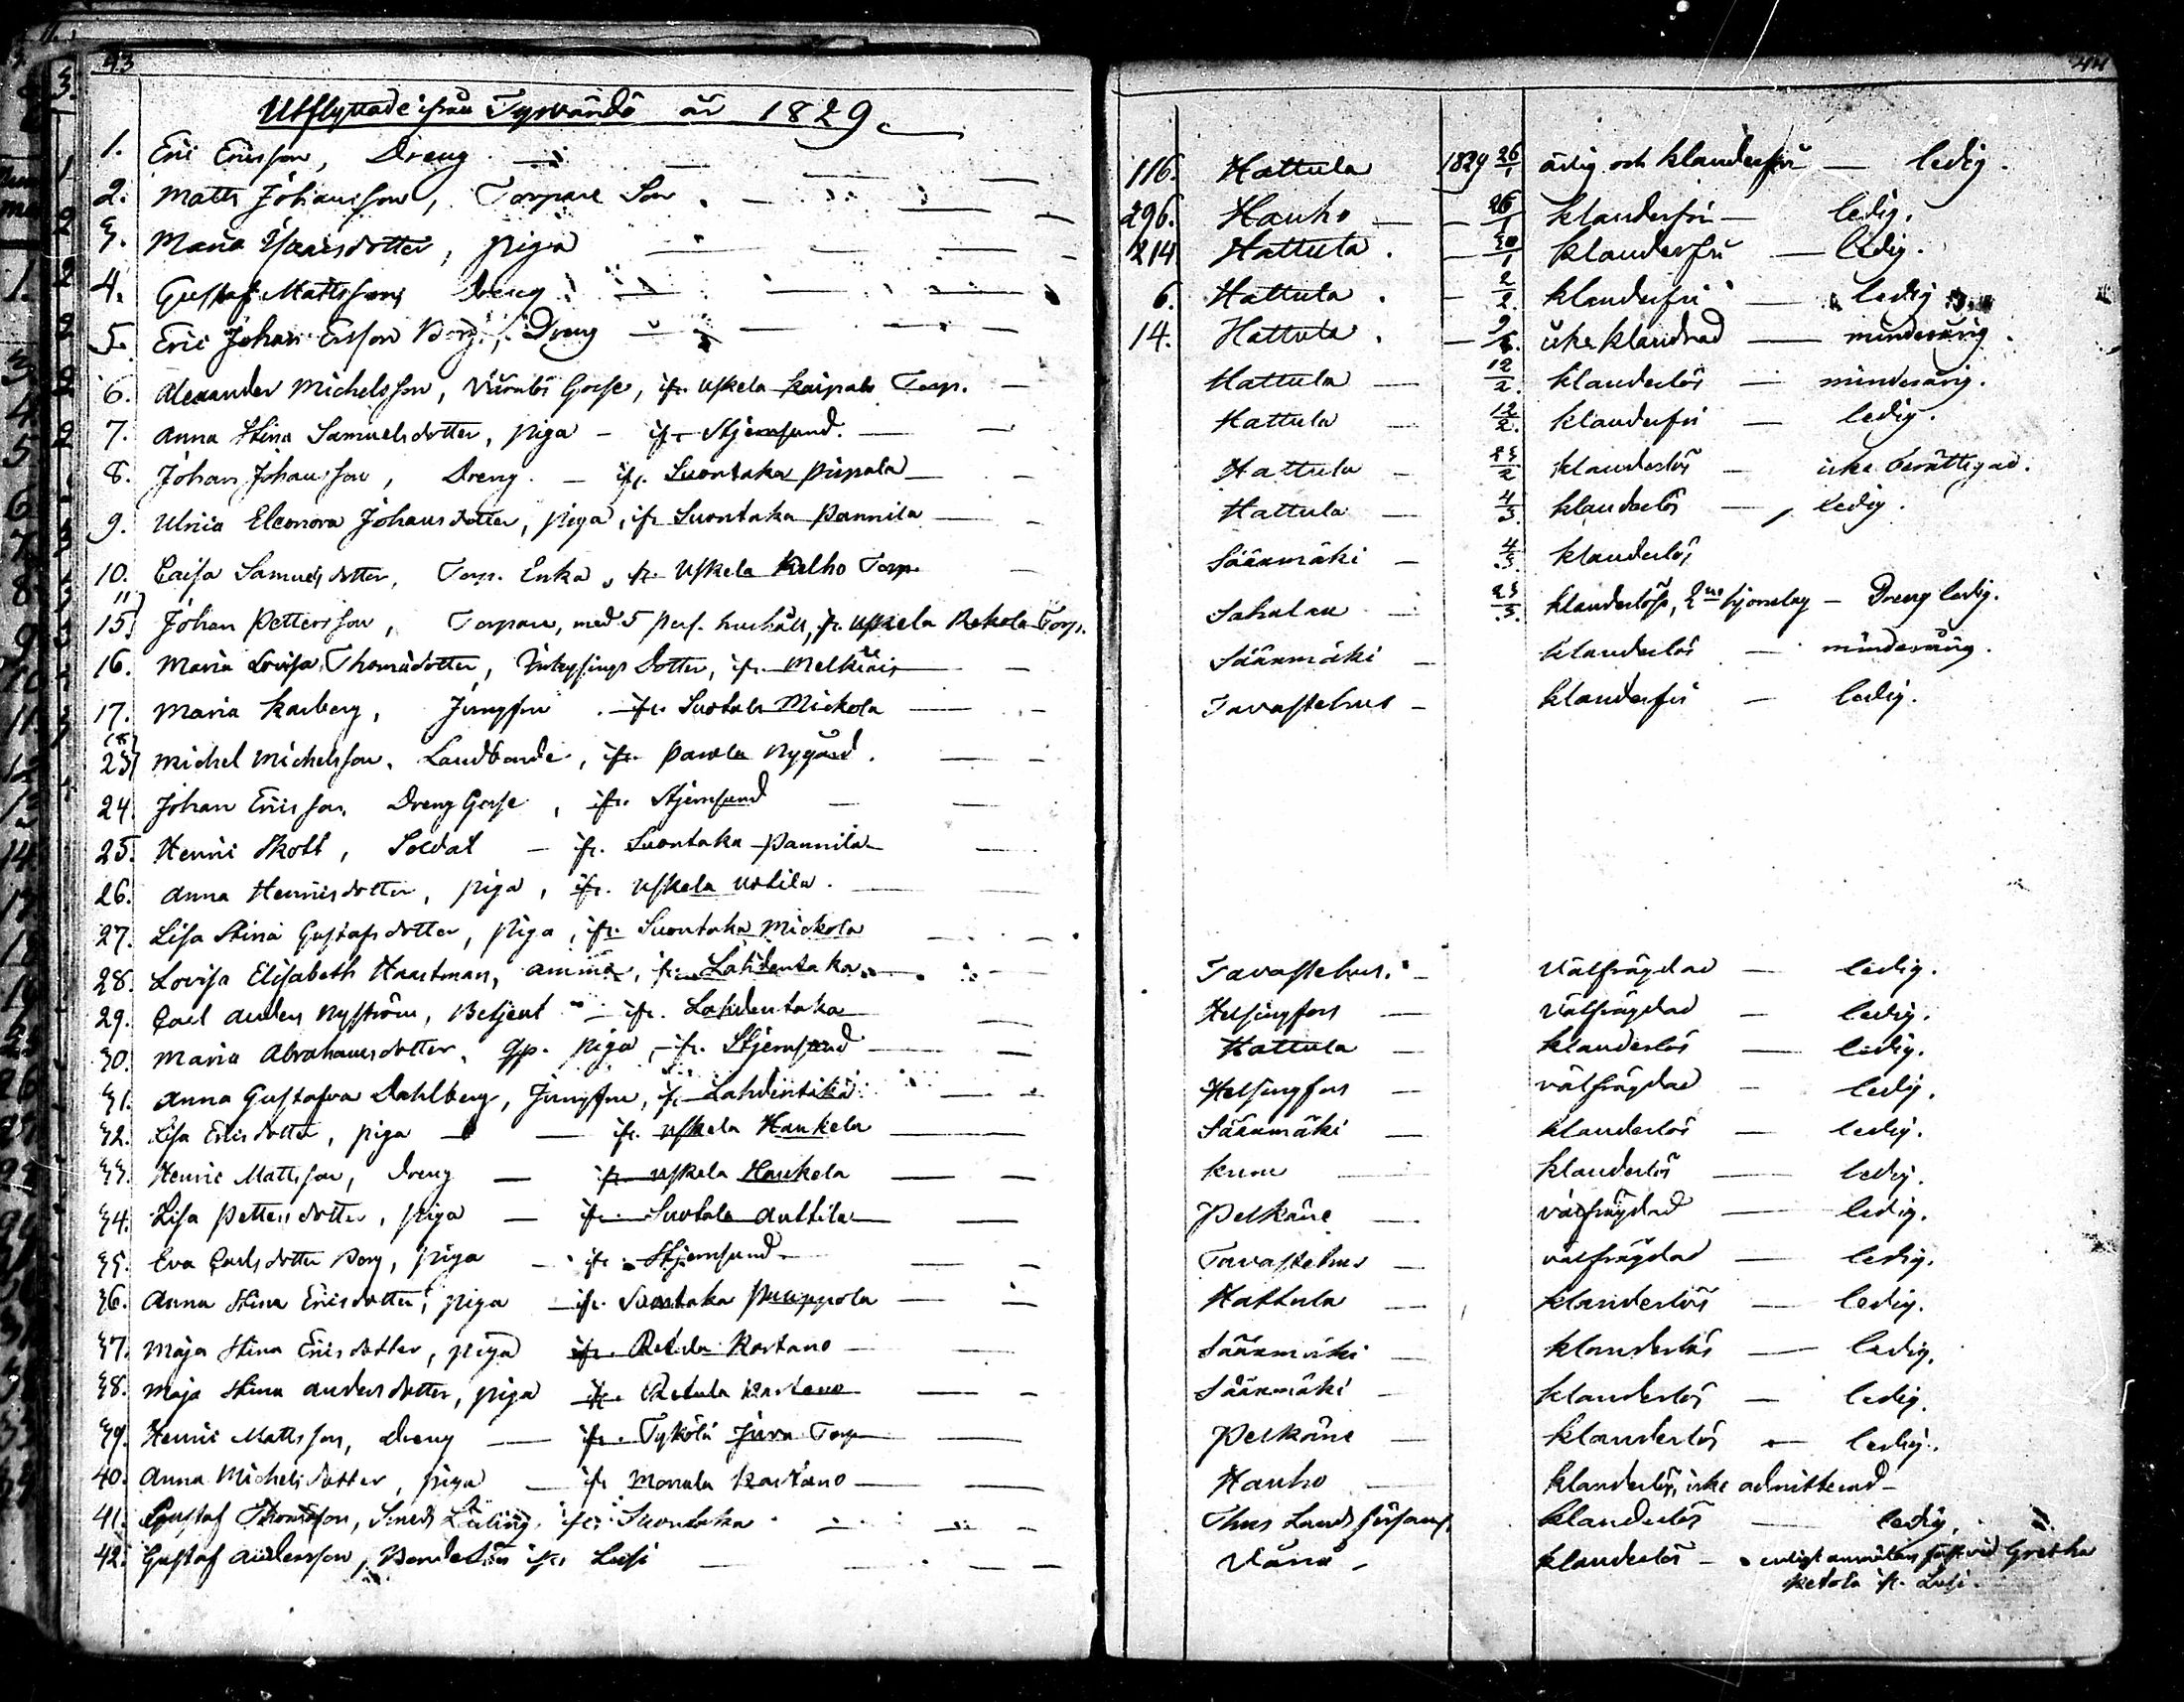 43
44
Utflyttade ifrån Tyrvändö år 1829.
1. Eric Ericsson, Dreng — 116. Hattula 1829 26/1 ärlig och klanderfri — ledig.
2. Matts Johansson, Torpare Son. — 296. Hauho — 26/1 klanderfri — ledig.
3. Maria Isaacsdotter, piga — 214 Hattula. — 30/1 klanderfri — ledig.
4. Gustaf Mattsson, Dreng — 6. Hattula. — 2/2 klanderfri — ledig
5. Eric Johan Ersson Borg, Dreng — 14. Hattula. — 9/2. icke klandrad — minderårig.
6. Alexander Michelsson, Gosse, ifr. Uskela Kaipala Torp. — Hattula — 12/2. klanderlös — minderårig.
7. Anna Stina Samuelsdotter, piga — ifr. Stjernsund. — Hattula — 12/2. klanderfri — ledig.
8. Johan Johansson, Dreng. — ifr. Suontaka pispala — Hattula — 23/2 klanderlös — icke berättigad.
9. Ulrica Eleonora Johansdotter, piga, ifr Suontaka Pannila — Hattula — 4/3. klanderlös — ledig.
10. Caisa Samuelsdotter, Torp. Enka, fr. Uskela Kelho Torp. — Sääxmäki — 4/3. klanderlös
11
15. Johan Pettersson, Torpare, med 5 pers. hushåll, fr. Uskela Rekola Torp. Sahalax — 23/3. klanderlöse, 2ne hjonelag — Dreng ledig.
16. Maria Lovisa Thomædotter, Inhysings Dotter, ifr. Melkiäis — Sääxmäki — klanderlös — minderårig.
17. Maria Karberg, Jungfru. — ifr. Suotala Mickola — Tavastehus — klanderfri — ledig.
18
23 Michel Michelsson, Landbonde, ifr. Pawola Nygård. —
24. Johan Ericsson, Dreng Gosse, ifr. Stjernsund —
25. Henric Skott, Soldat — ifr. Suontaka Pannila —
26. Anna Henricsdotter, piga, ifr. Uskela Uotila. —
27. Lisa Stina Gustafsdotter, piga, ifr. Suontaka Mickola —
28. Lovisa Elisabeth Haartman, amma, ifr. Lahdentaka. — Tavastehus. — Välfrägdad — ledig.
29. Carl Anders Nyström, Betjent — ifr. Lahdentaka — Helsingfors — Välfrägdad — ledig.
30. Maria Abrahamsdotter, Gp. piga, — fr. Stjernsund — Hattula — klanderlös — ledig.
31. Anna Gustafva Dahlberg, Jungfru, ifr. Lahdentaka — Helsingfors — välfrägdad — ledig.
32. Lisa Ericsdotter, piga — ifr. Uskela Haukela — Sääxmäki — klanderlös — ledig.
33. Henric Mattsson, dreng — ifr. Uskela Haukela — — klanderlös — ledig.
34. Lisa Pettersdotter, piga — ifr. Suotala Anttila — Pelkäne — välfrägdad — ledig.
35. Eva Carlsdotter Borg, piga — ifr. Stjernsund — Tavastehus — välfrägdad — ledig.
36. Anna Stina Ericsdotter, piga — ifr. Suontaka Puuppola — Hattula — klanderlös — ledig.
37. Maja Stina Ericsdotter, piga ifr. Retula Kartano — Sääxmäki — klanderlös — ledig.
38. Maja Stina Andersdotter, piga ifr. Retula Kartano — Sääxmäki — klanderlös — ledig.
39. Henric Mattsson, dreng — ifr. Tykölä Juva Torp — Pelkäne — klanderlös — ledig.
40. Anna Michelsdotter, piga — ifr Monala Kartano — Hauho — klanderlös, icke admitterad —
41. Gustaf Thomasson, Smeds Lärling, ifr. Suontaka — Thus Lands församl. klanderlös — ledig.
42. Gustaf Andersson, Bondeson ifr. Lusi — Vånå — klanderlös — enligt anmälan fäst vid Gretha
Ketola ifr. Lusi.